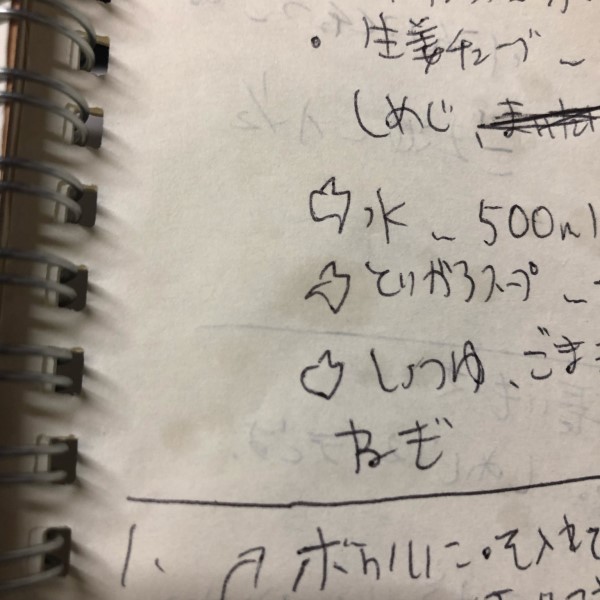 ・生姜チューブ ~
しめじ、
☆水 ~ 500ml
☆とりがらスープ ~
☆しょうゆ、ごま
ねぎ
1、 ボウルに・を入れて